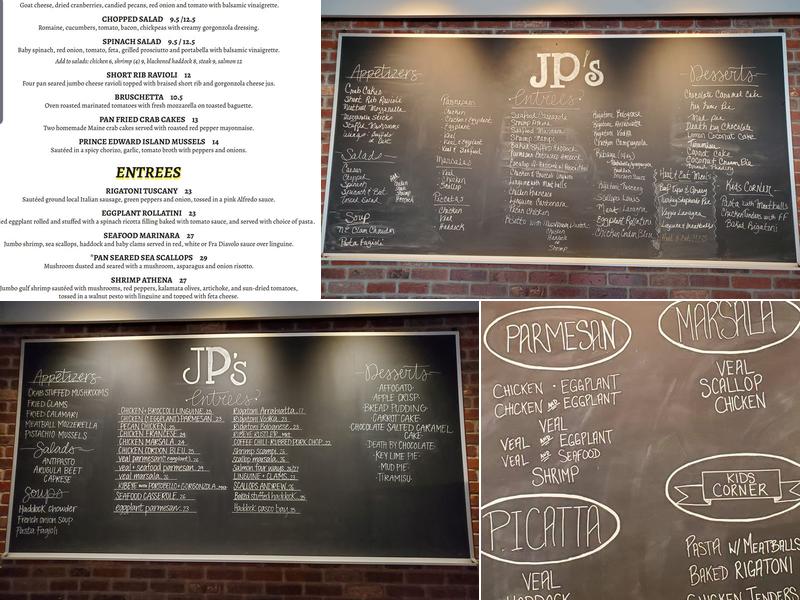 Goat cheese, dried cranberries, candied pecans, red onion and tomato with balsamic vinaigrette.
CHOPPED SALAD 9.5 /12.5
Romaine, cucumbers, tomato, bacon, chickpeas with creamy gorgonzola dressing.
SPINACH SALAD 9.5 / 12.5
Baby spinach, red onion, tomato, feta, grilled prosciutto and portabella with balsamic vinaigrette.
Add to salads: chicken 6, shrimp (4) 9, blackened haddock 8, steak 9, salmon 12
SHORT RIB RAVIOLI 12
Four pan seared jumbo cheese ravioli topped with braised short rib and gorgonzola cheese jus.
BRUSCHETTA 10.5
Oven roasted marinated tomatoes with fresh mozzarella on toasted baguette.
PAN FRIED CRAB CAKES 13
Two homemade Maine crab cakes served with roasted red pepper mayonnaise.
PRINCE EDWARD ISLAND MUSSELS 14
Sautéed in a spicy chorizo, garlic, tomato broth with peppers and onions.
ENTREES
RIGATONI TUSCANY 23
Sautéed ground local Italian sausage, green peppers and onion, tossed in a pink Alfredo sauce.
EGGPLANT ROLLATINI 23
eggplant rolled and stuffed with a spinach ricotta filling baked with tomato sauce, and served with choice of pasta.
SEAFOOD MARINARA 27
Jumbo shrimp, sea scallops, haddock and baby clams served in red, white or Fra Diavolo sauce over linguine.
*PAN SEARED SEA SCALLOPS 29
Mushroom dusted and seared with a mushroom, asparagus and onion risotto.
SHRIMP ATHENA 27
Jumbo gulf shrimp sautéed with mushrooms, red peppers, kalamata olives, artichoke, and sun-dried tomatoes,
tossed in a walnut pesto with linguine and topped with feta cheese.
JP's
Appetizers
Crab Cakes
Short Rib Ravioli
Meatball Mozzarella
Mozzarella Sticks
Stuffed Mushrooms
Salads
Caesar
Chopped
Spinach
Soup
N.E. Clam Chowder
Pasta Fagioli
Parmesan
Chicken
Chicken + Eggplant
Eggplant
Veal
Veal + Eggplant
Veal + Seafood
Marsalas
Veal
Chicken
Scallop
Picattas
Chicken
Veal
Haddock
Entrees
Seafood Casserole
Shrimp Athena
Seafood Marinara
Shrimp Scampi
Baked Stuffed Haddock
Chicken & Broccoli Linguine
Linguine with Meatballs
Chicken Francese
Linguine Carbonara
Pecan Chicken
Rigatoni Bolognese
Rigatoni Vodka
Chicken Campagnola
Rigatoni Tuscany
Eggplant Rollatini
Chicken Cordon Bleu
Desserts
Chocolate Caramel Cake
Key Lime Pie
Mud Pie
Death by Chocolate
Lemon Coconut Cake
Tiramisu
Carrot Cake
Coconut Cream Pie
Kids Corner
Pasta with Meatballs
Chicken Tenders with FF
Baked Rigatoni
JP's
Appetizers
CRAB STUFFED MUSHROOMS
FRIED CLAMS
FRIED CALAMARI
MEATBALL MOZZERELLA
PISTACHIO MUSSELS
Salads
ANTIPASTO
ARUGULA BEET
CAPRESE
Soups
Haddock chowder
French onion soup
Pasta Fagioli
Entrees
CHICKEN + BROCCOLI LINGUINE
CHICKEN (EGGPLANT) PARMESAN
PECAN CHICKEN
CHICKEN FRANCESE
CHICKEN MARSALA
CHICKEN CORDON BLEU
veal parmesan (+ eggplant)
veal + seafood parmesan
veal marsala
RIBEYE with PORTOBELLO + GORGONZOLA
SEAFOOD CASSEROLE
eggplant parmesan
Rigatoni Arrabiatta
Rigatoni Vodka
Rigatoni Bolognese
COFFEE CHILI-RUBBED PORK CHOP
Shrimp scampi
scallop marsala
Salmon four ways
LINGUINE + CLAMS
SCALLOPS ANDREW
Baked stuffed haddock
Haddock casco bay
Desserts
AFFOGATO
APPLE CRISP
BREAD PUDDING
CARROT CAKE
CHOCOLATE SALTED CARAMEL
CAKE
DEATH BY CHOCOLATE
KEY LIME PIE
MUD PIE
TIRAMISU
PARMESAN
CHICKEN • EGGPLANT
CHICKEN AND EGGPLANT
VEAL
VEAL AND EGGPLANT
VEAL AND SEAFOOD
SHRIMP
PICATTA
VEAL
HADDOCK
MARSALA
VEAL
SCALLOP
CHICKEN
KIDS
CORNER
PASTA W/ MEATBALLS
BAKED RIGATONI
CHICKEN TENDERS